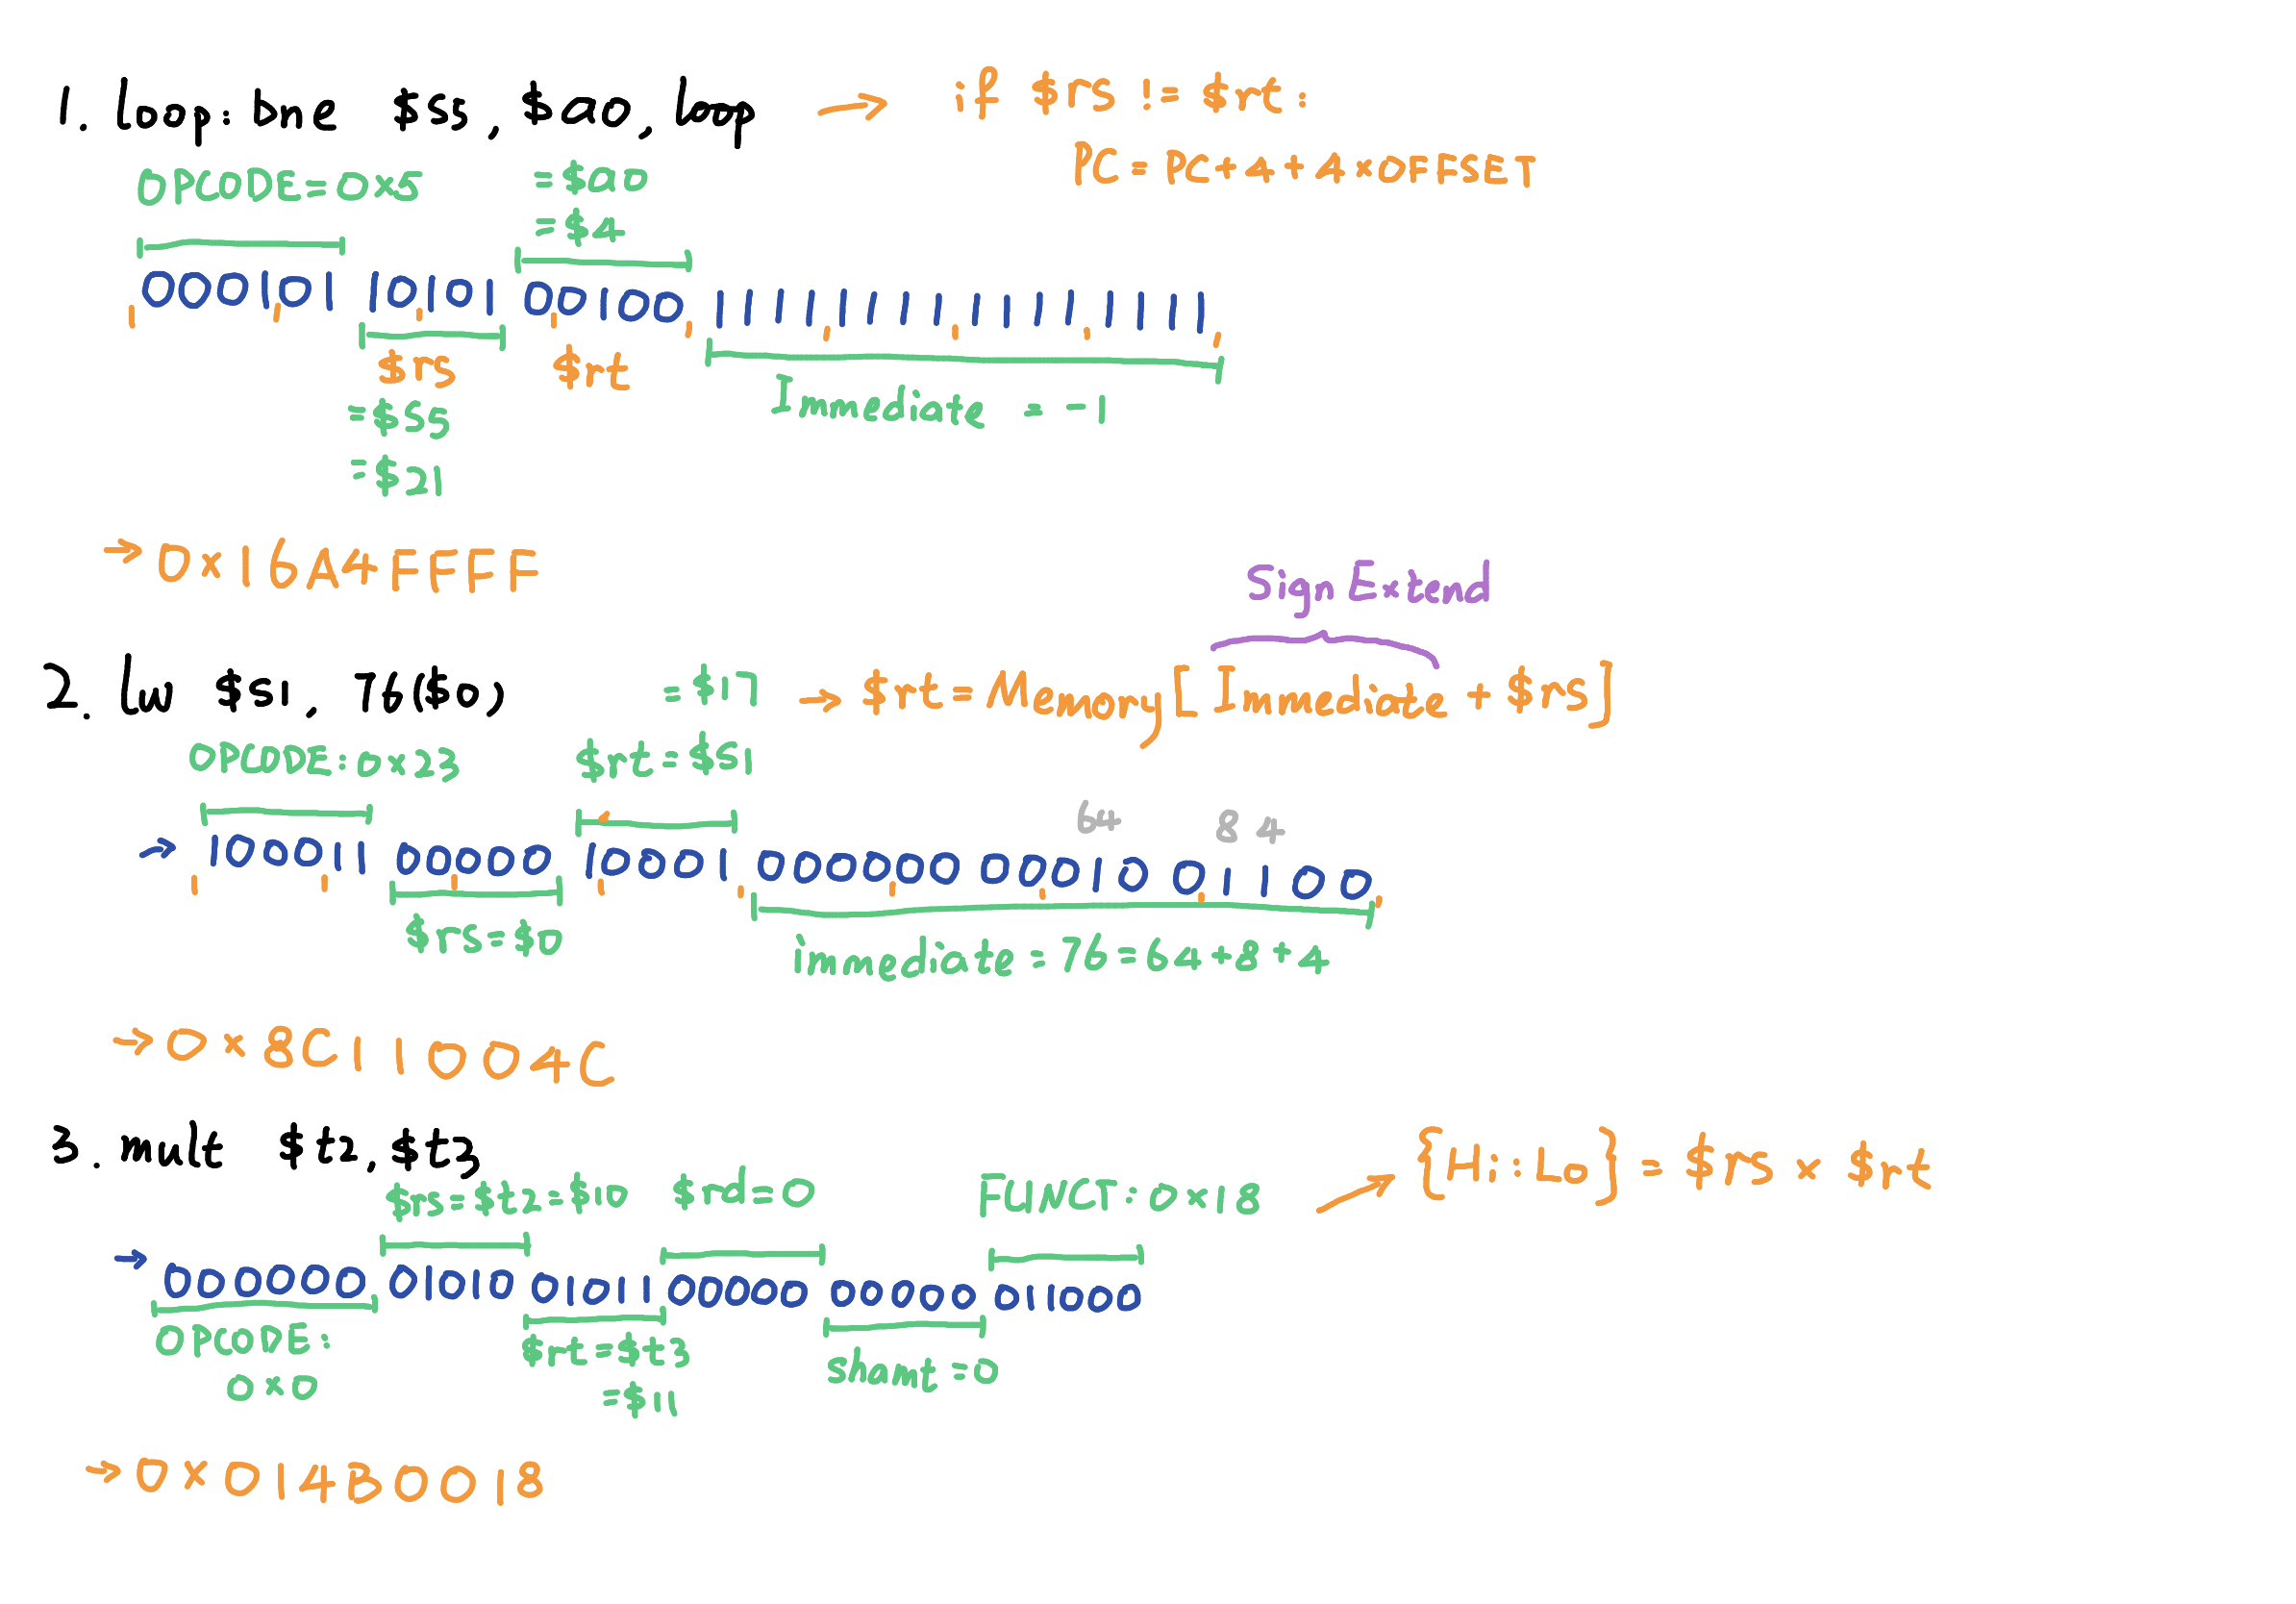 1. loop: bne $s5, $a0, loop → if $rs != $rt:
PC = PC+4+4×OFFSET
OPCODE=0×5 =$a0
=$4
000101 10101 00100 1111111111111111
$rs $rt
Immediate = -1
=$s5
=$21
→ 0×16A4FFFF
Sign Extend
2. lw $s1, 76($0) =$17 → $rt = Memory[Immediate + $rs]
OPCODE: 0×23 $rt=$s1
64 8 4
→ 100011 00000 10001 000000 00010 01100
$rs=$0 immediate=76=64+8+4
→ 0×8C11004C
3. mult $t2, $t3 → {Hi::Lo} = $rs × $rt
$rs=$t2=$10 $rd=0 FUNCT: 0×18
→ 000000 01010 01011 00000 00000 011000
OPCODE: $rt=$t3 shamt=0
0×0 =$11
→ 0×014B0018